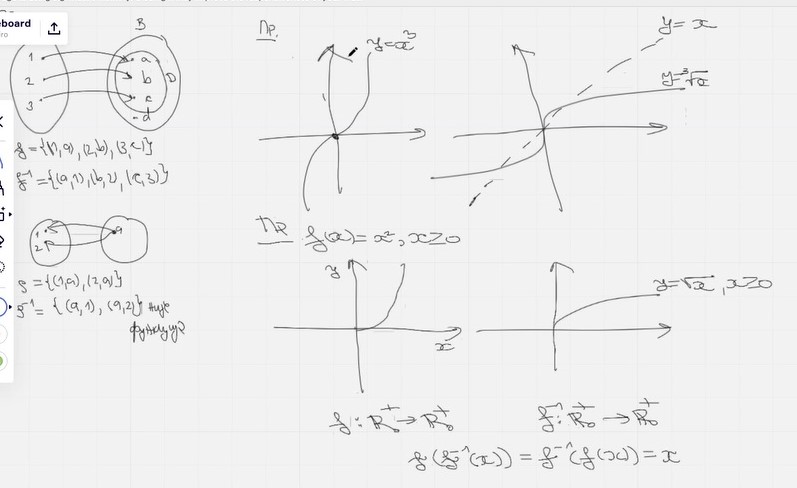 eboard
ro
B
1
2
3
a
b
c
d
D
f = {(1,a), (2,b), (3,c)}
f⁻¹ = {(a,1), (b,2), (c,3)}
1
2
a
g = {(1,a), (2,a)}
g⁻¹ = {(a,1), (a,2)} није
функција
Пр.
y=x³
y=x
y=∛x
Пр f(x)=x², x≥0
y
x
y=√x, x≥0
f: R₀⁺→R₀⁺
f⁻¹: R₀⁺→R₀⁺
f(f⁻¹(x)) = f⁻¹(f(x)) = x